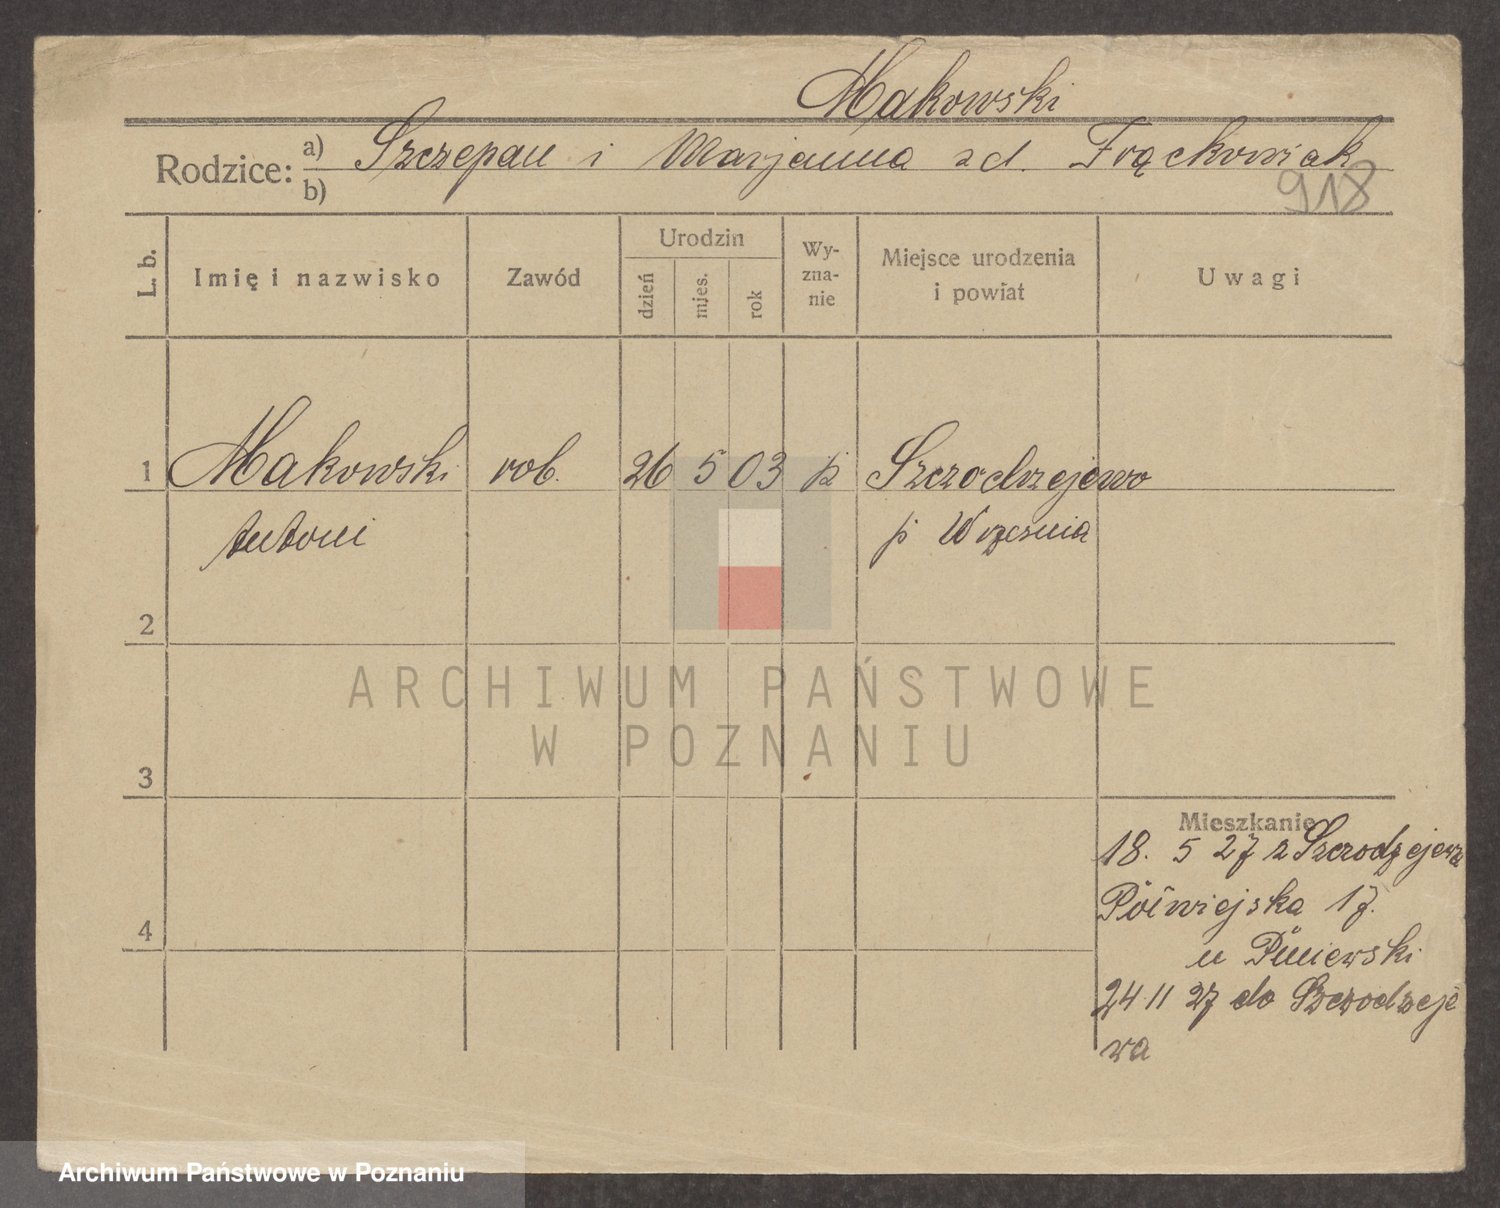 Makowski
Rodzice: a) Szczepan i Marjanna zd. Frąckowiak
b)
918
L. b.
Imię i nazwisko
Zawód
Urodzin
dzień
mies.
rok
Wy-
zna-
nie
Miejsce urodzenia
i powiat
Uwagi
1 Makowski rob. 26 5 03 k Szczodrzejewo
Antoni p Września
2
ARCHIWUM PAŃSTWOWE
W POZNANIU
3
4
Mieszkanie
18. 5 27 z Szczodrzejewa
Półwiejska 17.
u Pniewski
24 11 27 do Szczodrzeje
wa
Archiwum Państwowe w Poznaniu